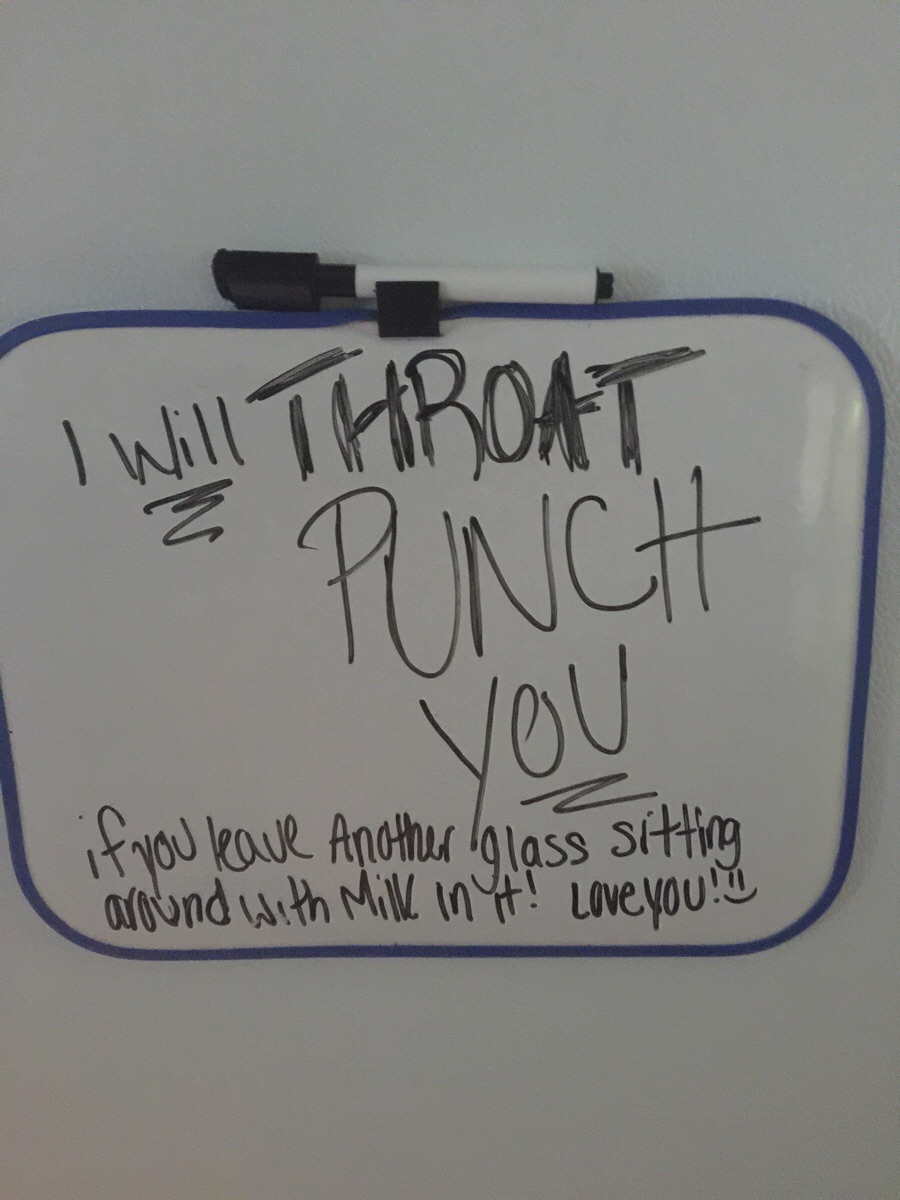 I Will THROAT
PUNCH
YOU
if you leave Another glass sitting
around with Milk in it! Love you!!